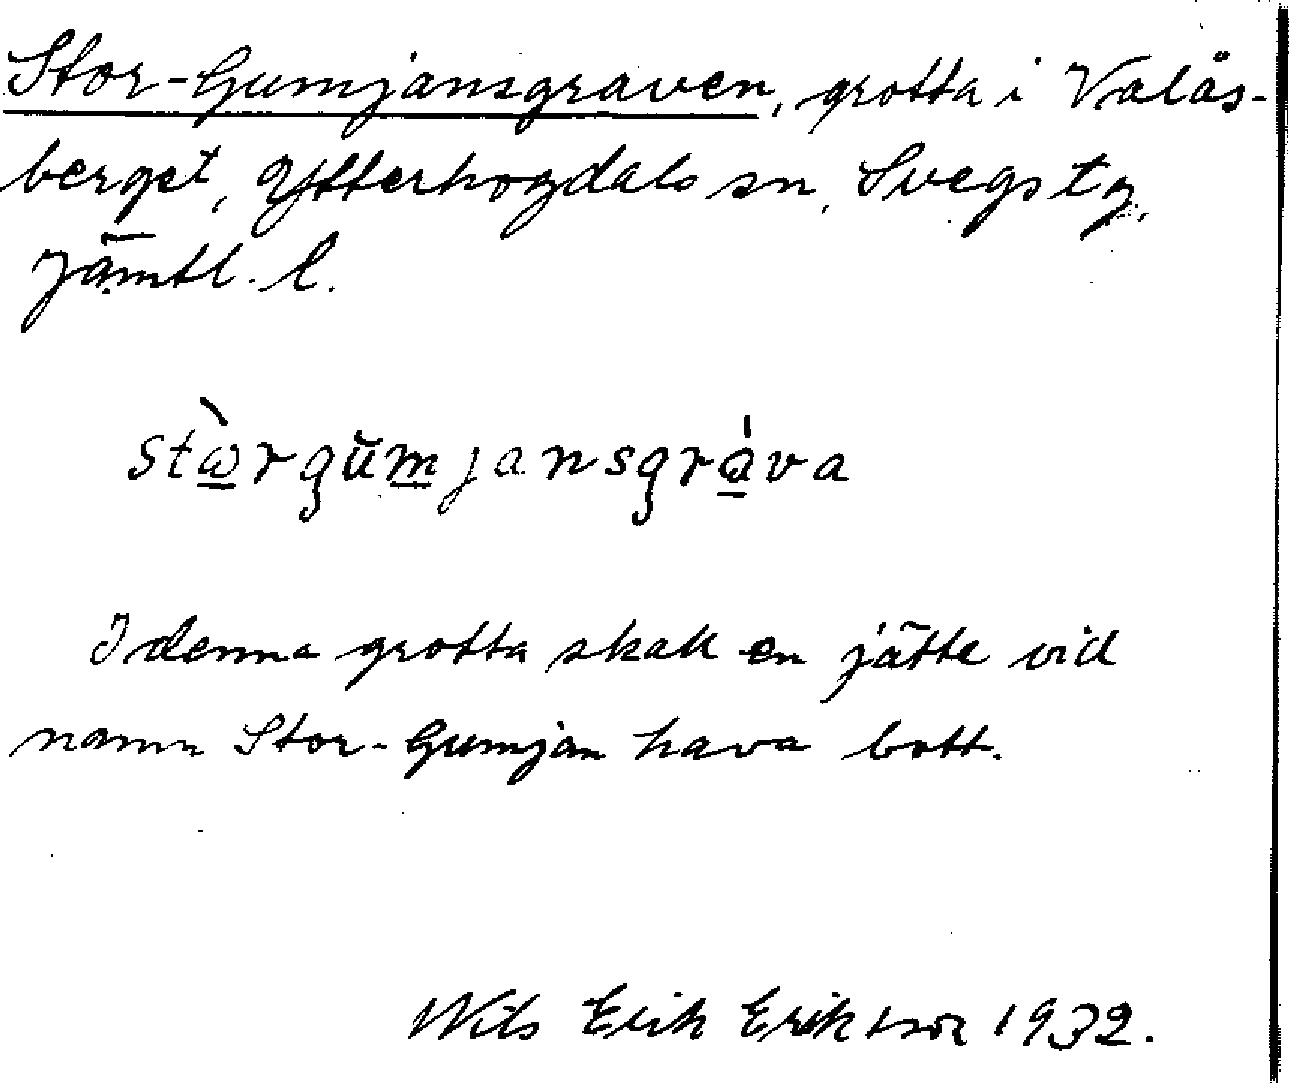 Stor-Gumjansgraven, grotta i Valås-
berget, Ytterhogdals sn, Svegs tg,
Jämtl. l.
stὼ̲rgŭm̲jansgrà̲va
I denna grotta skall en jätte vid
namn Stor-Gumjan hava bott.
Nils Erik Eriksson 1932.